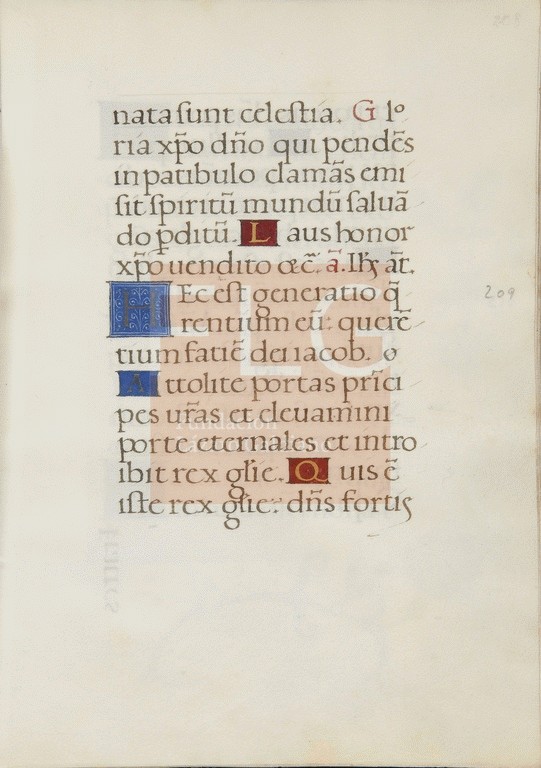 nata sunt celestia. G lo
ria xp̄o dn̄o qui pendēs
in patibulo clamās emi
sit spiritū mundū saluā
do pditū. L aus honor
xp̄o uendito ⁊c̄. ā. Ihs̄ āt.
HEc est generatio q̄
rentium eū: querē
tium fatiē dei iacob. o
A ttolite portas prīci
pes ur̄as et eleuamini
porte eternales et intro
ibit rex glīe. Q uis ē
iste rex glīe: dn̄s fortis
209
FLG
Fundación
Lázaro Galdiano